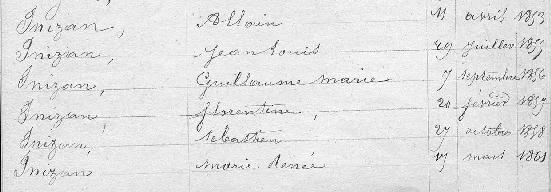 Inizan, Allain 11 avril 1853
Inizan, Jean Louis 29 juillet 1854
Inizan, Guillaume marie 7 septembre 1856
Inizan, florentine, 20 février 1857
Inizan, sébastien 27 octobre 1858
Inizan marie-Renée 17 mars 1861